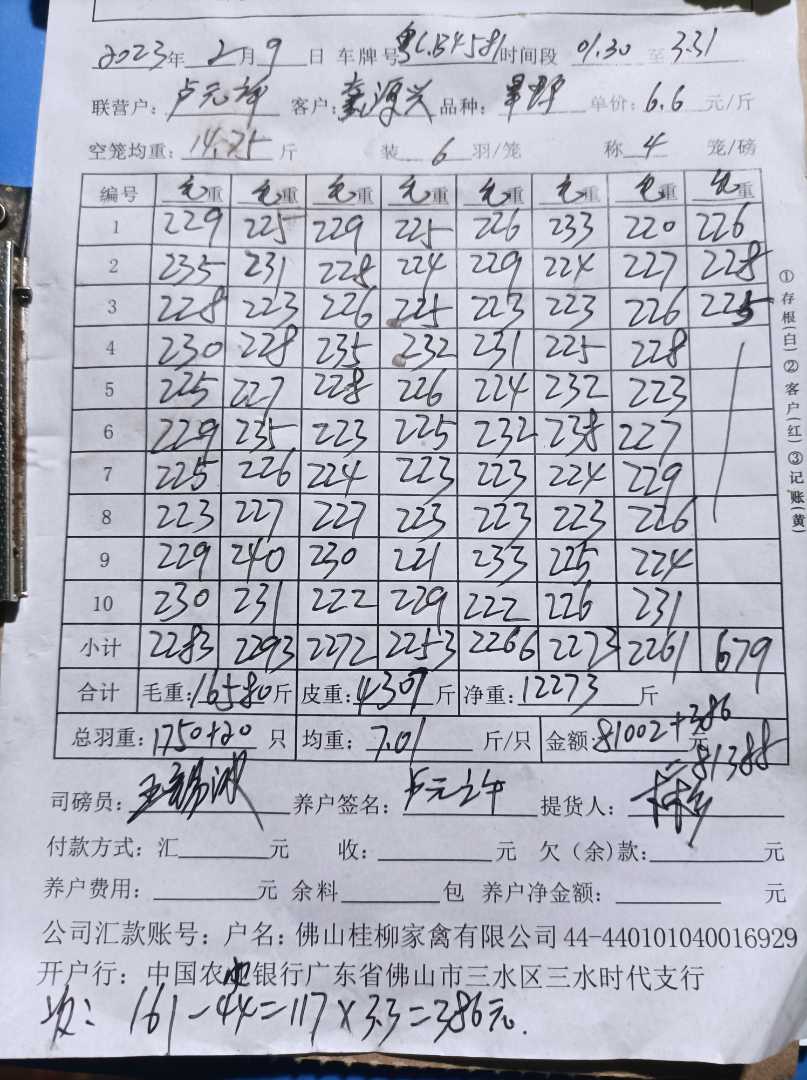 2023年 2月 9日 车牌号 粤C.B4581 时间段 01.30 至 3.31
联营户: 卢元 客户: 源兴 品种: 单价: 6.6 元/斤
空笼均重: 14.75 斤 装 6 羽/笼 称 4 笼/磅
编号 毛重 毛重 毛重 毛重 毛重 毛重 毛重 毛重
1 229 225 229 225 226 233 220 226
2 235 231 228 224 229 224 227 228
3 228 223 226 225 223 223 226 225
4 230 228 235 232 231 225 228
5 225 227 228 226 224 232 223
6 229 235 223 225 232 238 227
7 225 226 224 223 223 224 229
8 223 227 227 223 223 223 226
9 229 240 230 221 233 225 224
10 230 231 222 229 222 226 231
小计 2283 2293 2272 2253 2266 2273 2261 679
合计 毛重: 16580 斤 皮重: 4307 斤 净重: 12273 斤
总羽重: 1750+20 只 均重: 7.01 斤/只 金额: 81002+386 元
=81388
司磅员: 养户签名: 卢元 提货人:
付款方式: 汇 元 收: 元 欠(余)款: 元
养户费用: 元 余料 包 养户净金额: 元
公司汇款账号: 户名: 佛山桂柳家禽有限公司 44-440101040016929
开户行: 中国农业银行广东省佛山市三水区三水时代支行
161-44=117×3.3=386元.
①存根(白)②客户(红)③记账(黄)